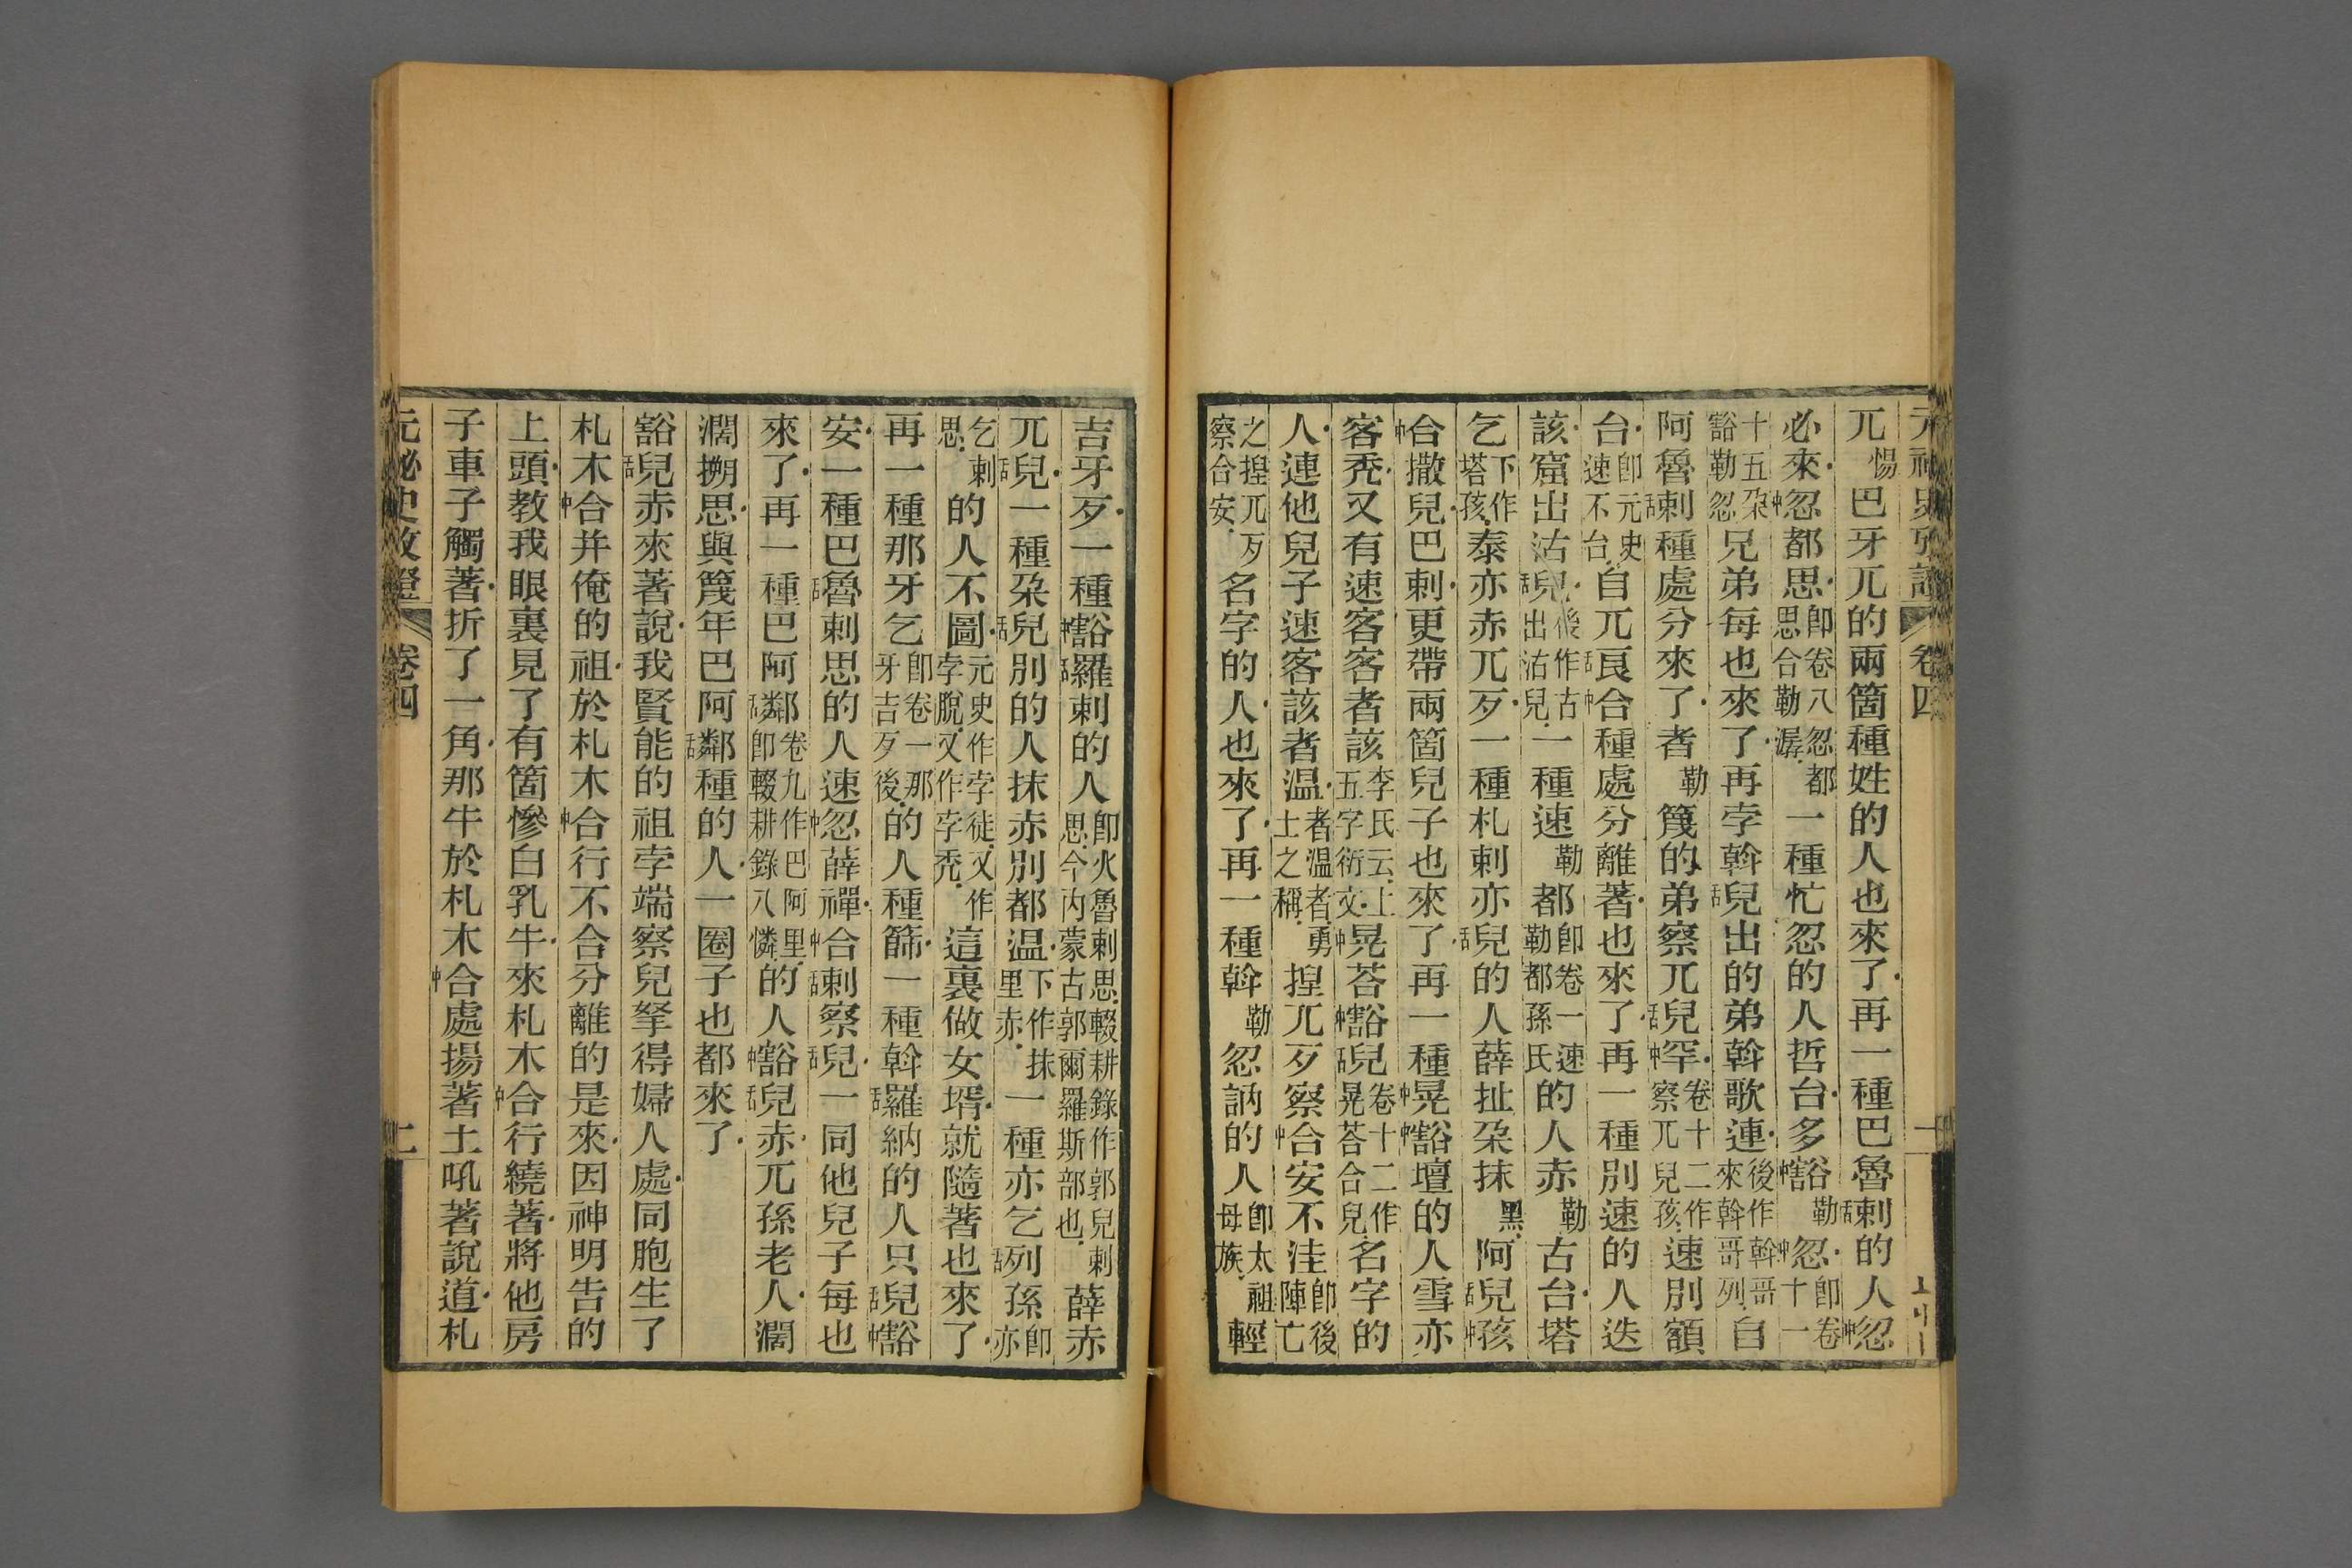 元秘史攷證 卷四
兀惕巴牙兀的兩箇種姓的人也來了再一種巴魯舌剌的人中忽
必來中忽都思卽卷八忽都思合勒潺一種忙忽的人哲台多中豁勒中忽卽卷十一
十五朶豁勒忽兄弟每也來了再孛斡舌兒出的弟斡歌連後作斡哥來斡哥列自
阿魯舌剌種處分來了者勒篾的弟察兀舌兒中罕卷十二作察兀兒孩速別額
台卽元史速不台自兀舌良中合種處分離著也來了再一種別速的人迭
該窟出沽舌兒後作古出沽兒一種速勒都卽卷一速勒都孫氏的人赤勒古台塔
乞下作塔孩泰亦赤兀歹一種札剌亦舌兒的人薛扯朶抹黑阿舌兒中孩
中合撒兒巴剌更帶兩箇兒子也來了再一種中晃中豁壇的人雪亦
客禿又有速客客者該李氏云上五字衍文中晃荅中豁舌兒卷十二作晃荅合兒名字的
人連他兒子速客該者溫者溫者勇士之稱揑兀歹察中合安不洼卽後陣亡
之揑兀歹察合安名字的人也來了再一種斡勒忽訥的人卽太祖母族輕
吉牙歹一種中豁舌羅剌的人卽火魯剌思輟耕錄作郭兒剌思今內蒙古郭爾羅斯部也薛赤
兀舌兒一種朶舌兒別的人抹赤別都溫下作抹里赤一種亦乞舌列孫卽亦
乞剌思的人不圖元史作孛徒又作孛脫又作孛禿這裏做女壻就隨著也來了
再一種那牙乞卽卷一那牙吉歹後的人種篩一種斡舌羅納的人只舌兒中豁
安一種巴舌魯剌思的人速中忽薛禪中合舌剌察舌兒一同他兒子每也
來了再一種巴阿舌鄰卷九作巴阿里卽輟耕錄八憐的人中豁舌兒赤兀孫老人濶
濶搠思與篾年巴阿舌鄰種的人一圈子也都來了
豁舌兒赤來著說我賢能的祖孛端察兒拏得婦人處同胞生了
札木中合并俺的祖於札木中合行不合分離的是來因神明告的
上頭教我眼裏見了有箇慘白乳牛來札木中合行繞著將他房
子車子觸著折了一角那牛於札木中合處揚著土吼著說道札
元秘史攷證 卷四 二